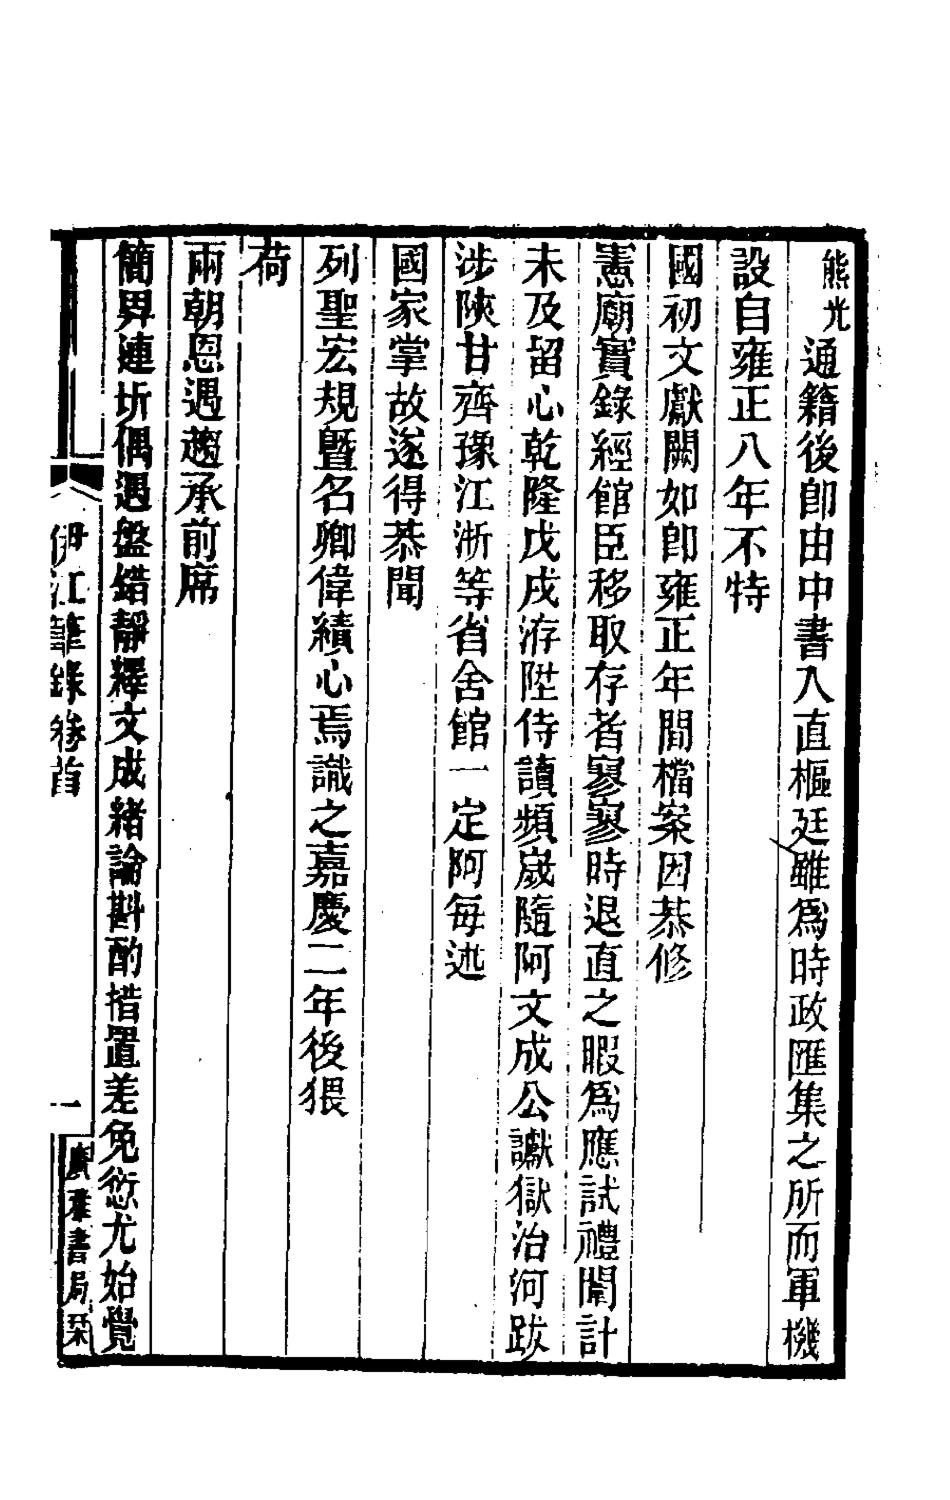 熊光通籍後卽由中書入直樞廷雖爲時政匯集之所而軍機
設自雍正八年不特
國初文獻闕如卽雍正年間檔案因恭修
憲廟實錄經館臣移取存者寥寥時退直之暇爲應試禮闈計
未及留心乾隆戊戌洊陞侍讀頻歲隨阿文成公讞獄治河跋
涉陝甘齊豫江浙等省舍館一定阿每述
國家掌故遂得恭聞
列聖宏規暨名卿偉績心焉識之嘉慶二年後猥
荷
兩朝恩遇趨承前席
簡畀連圻偶遇盤錯靜繹文成緒論斟酌措置差免愆尤始覺
伊江筆錄卷首
一
廣雅書局栞